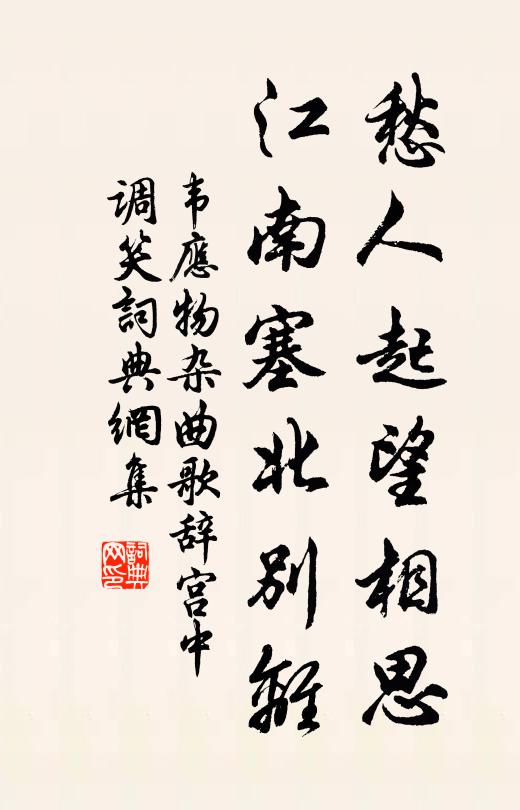 愁人起望相思
江南塞北别離
韦應物杂曲歌辞宫中
调笑詞典網集
詞典网印